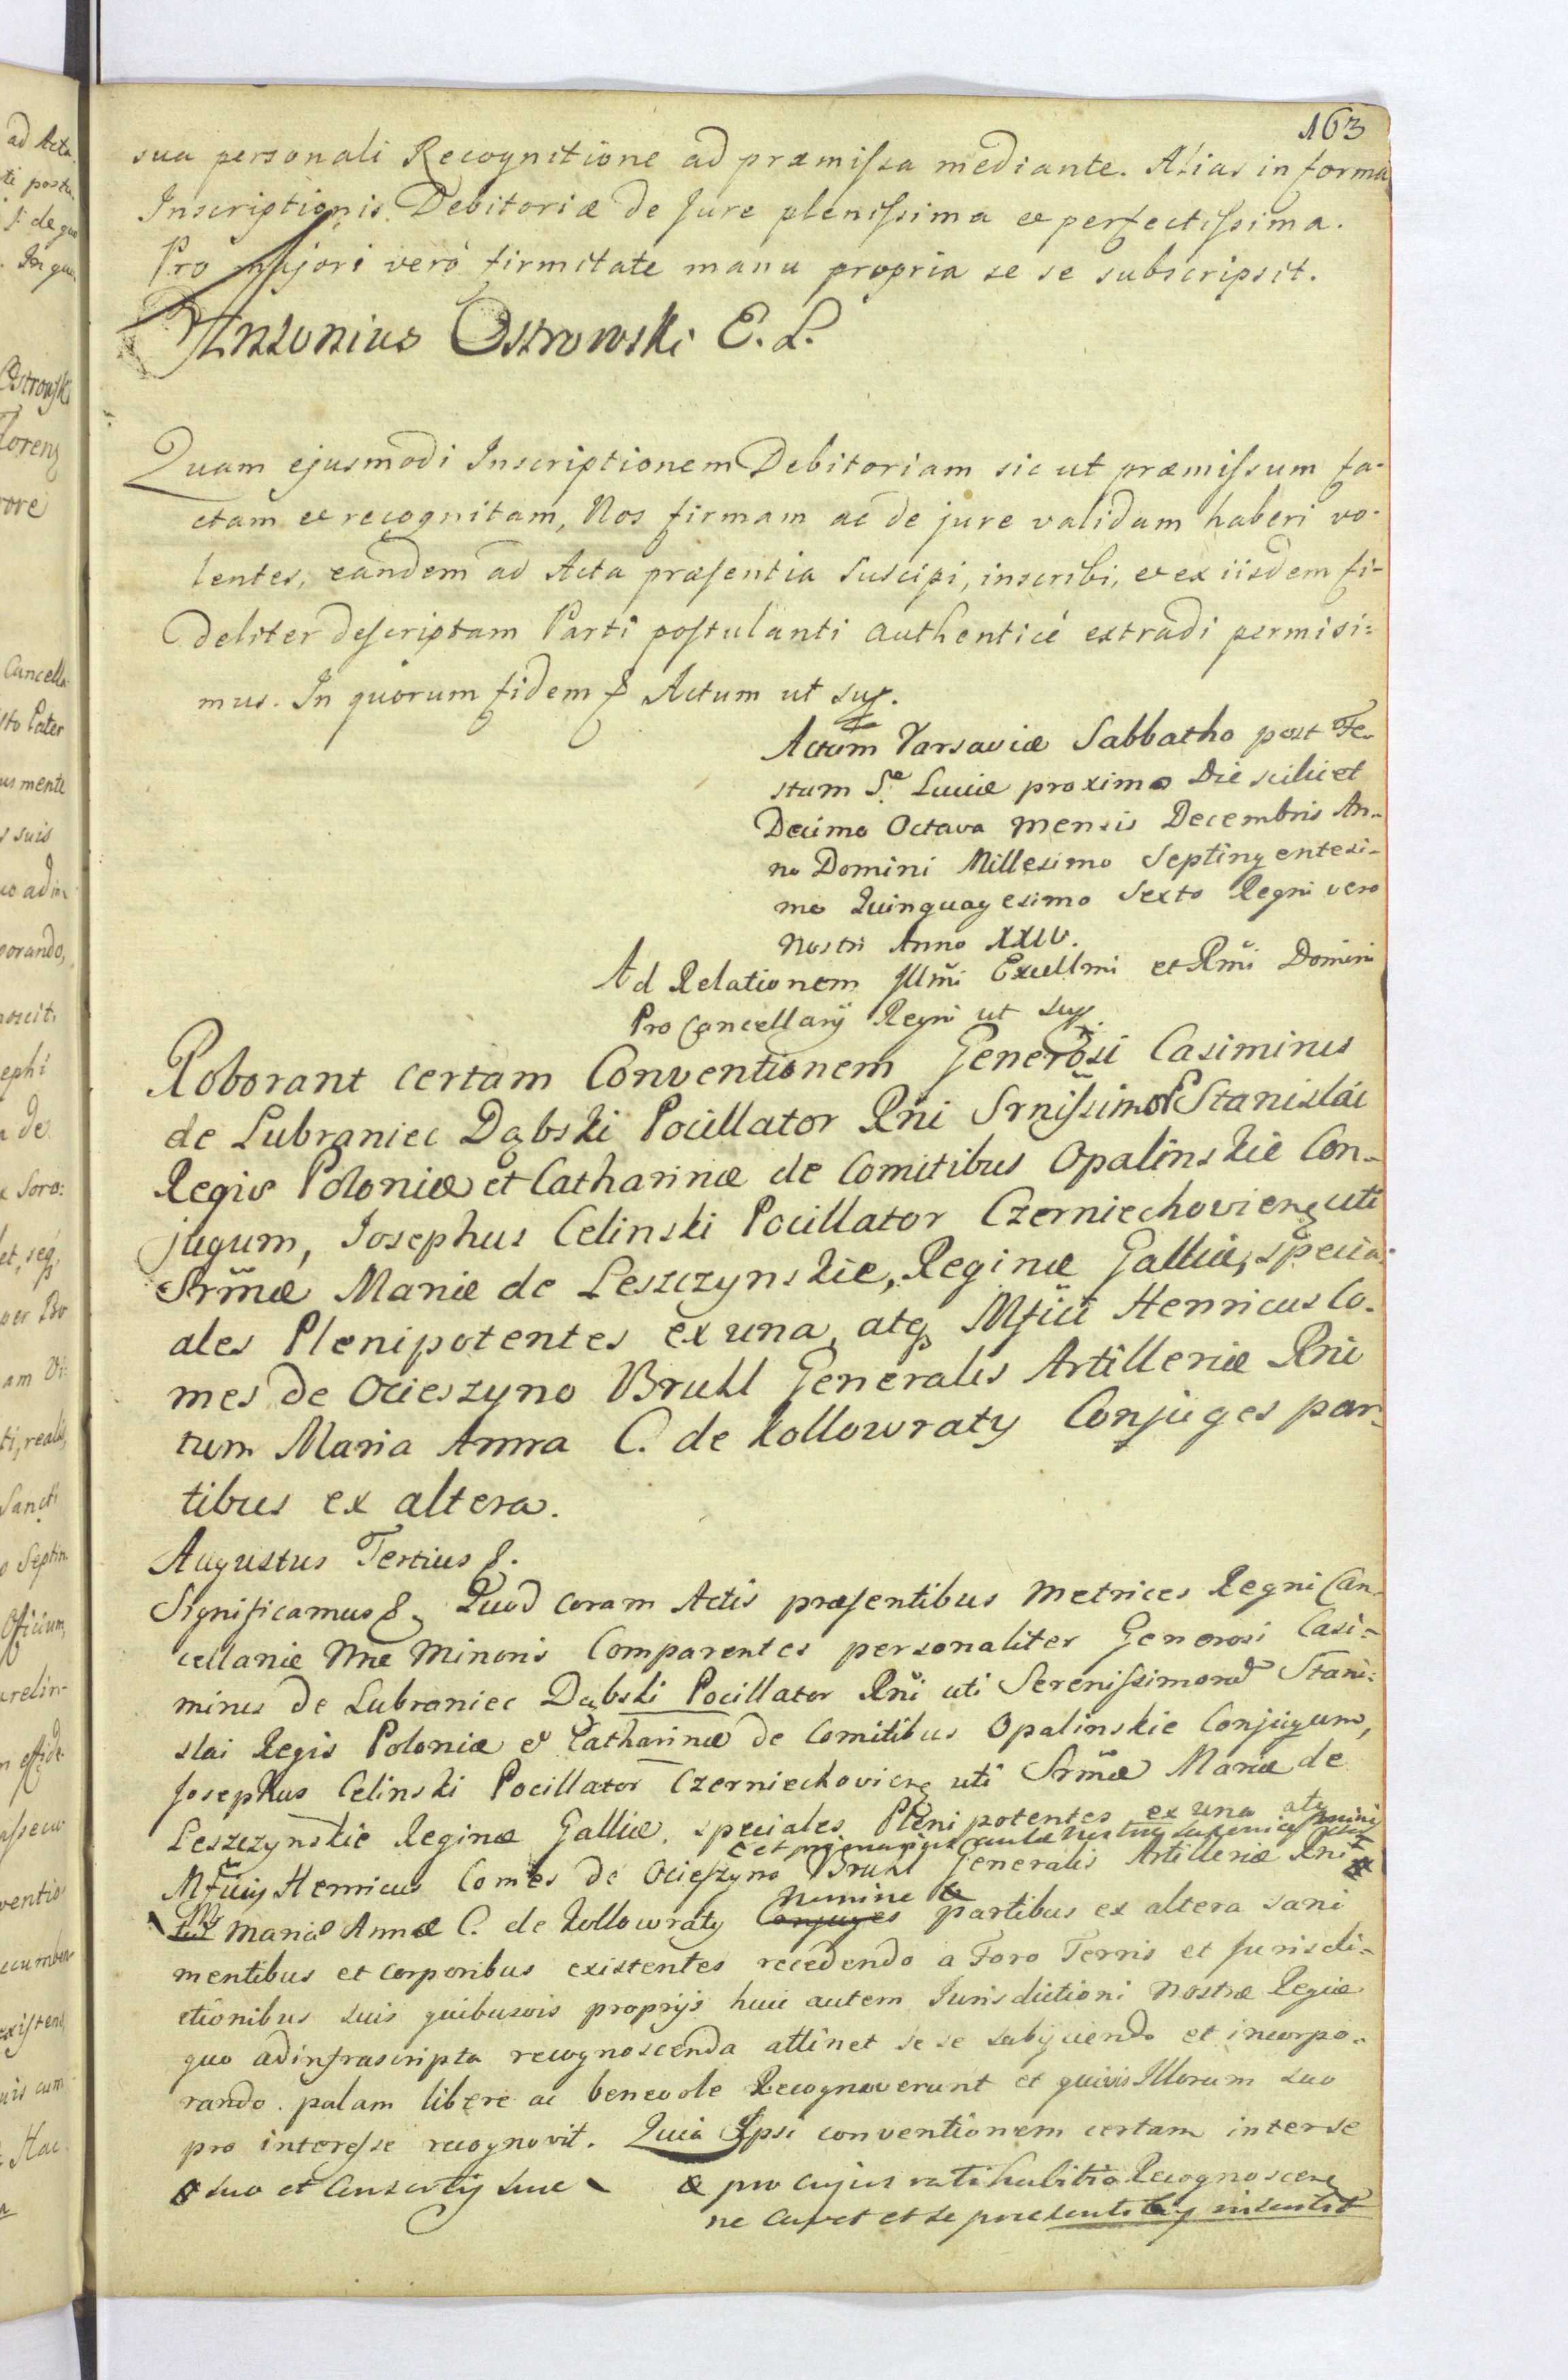 163
sua personali Recognitione ad præmissa mediante. Alias in forma
Inscriptionis Debitoriæ de Jure plenissima et perfectissima.
Pro majori verò firmitate manu propria se se subscripsit.
Antonius Ostrowski E. L.
Quam ejusmodi Inscriptionem Debitoriam sic ut præmissum fa-
ctam et recognitam, Nos firmam ac de jure validam haberi vo-
lentes, eandem ad Acta præsentia suscipi, inscribi, et ex iisdem fi-
deliter descriptam Parti postulanti authenticè extradi permisi=
mus. In quorum fidem & Actum ut sup.
Actum Varsaviæ Sabbatho post Fe-
stum S.æ Luciæ proximo Die scilicet
Decima Octava Mensis Decembris An-
no Domini Millesimo Septingentesi-
mo Quinquagesimo Sexto Regni vero
Nostri Anno XXIV.
Ad Relationem Illmi Excellmi et Rmi Domini
Pro Cancellarij Regni ut sup.
Roborant certam Conventionem Generosi Casimirus
de Lubraniec Dąbski Pocillator Rni Srnissimor Stanislai
Regis Poloniæ et Catharinæ de Comitibus Opalinskie Con-
jugum, Josephus Celinski Pocillator Czerniechoviens uti
Srmæ Mariæ de Leszczynskie, Reginæ Galliæ, specia-
ales Plenipotentes ex una, atq Mfici Henricus Co-
mes de Ocieszyno Bruhl Generalis Artilleriæ Rni
tum Maria Anna C. de Kollowraty Conjuges par-
tibus ex altera.
Augustus Tertius &.
Significamus &. Quod coram Actis præsentibus Metrices Regni Can-
cellariæ Nræ Minoris Comparentes personaliter Generosi Casi-
mirus de Lubraniec Dąbski Pocillator Rni uti Serenissimorũ Stani-
slai Regis Poloniæ & Catharinæ de Comitibus Opalinskie Conjugum,
Josephus Celinski Pocillator Czerniechoviens uti Srmæ Mariæ de
Leszczynskie Reginæ Galliæ, speciales Plenipotentes ex una atq
Mficus Henricus Comes de Ocieszyno Bruhl Generalis Artilleriæ Rni
Mariæ Annæ C. de Kollowraty Conjuges nomine partibus ex altera sani
mentibus et corporibus existentes recedendo a Foro Terris et Jurisdi-
ctionibus suis quibusvis proprijs huic autem Jurisdictioni Nostræ Regiæ
quo ad infrascripta recognoscenda attinet se se subijciendo et incorpo-
rando. palam libere ac benevole Recognoverunt et quivis Illorum suo
pro interesse recognovit. Quia Ipsi conventionem certam inter se
suo et Consortis suæ
pro cujus ratihabitio Recognoscere
ne cavet et se præsentibus